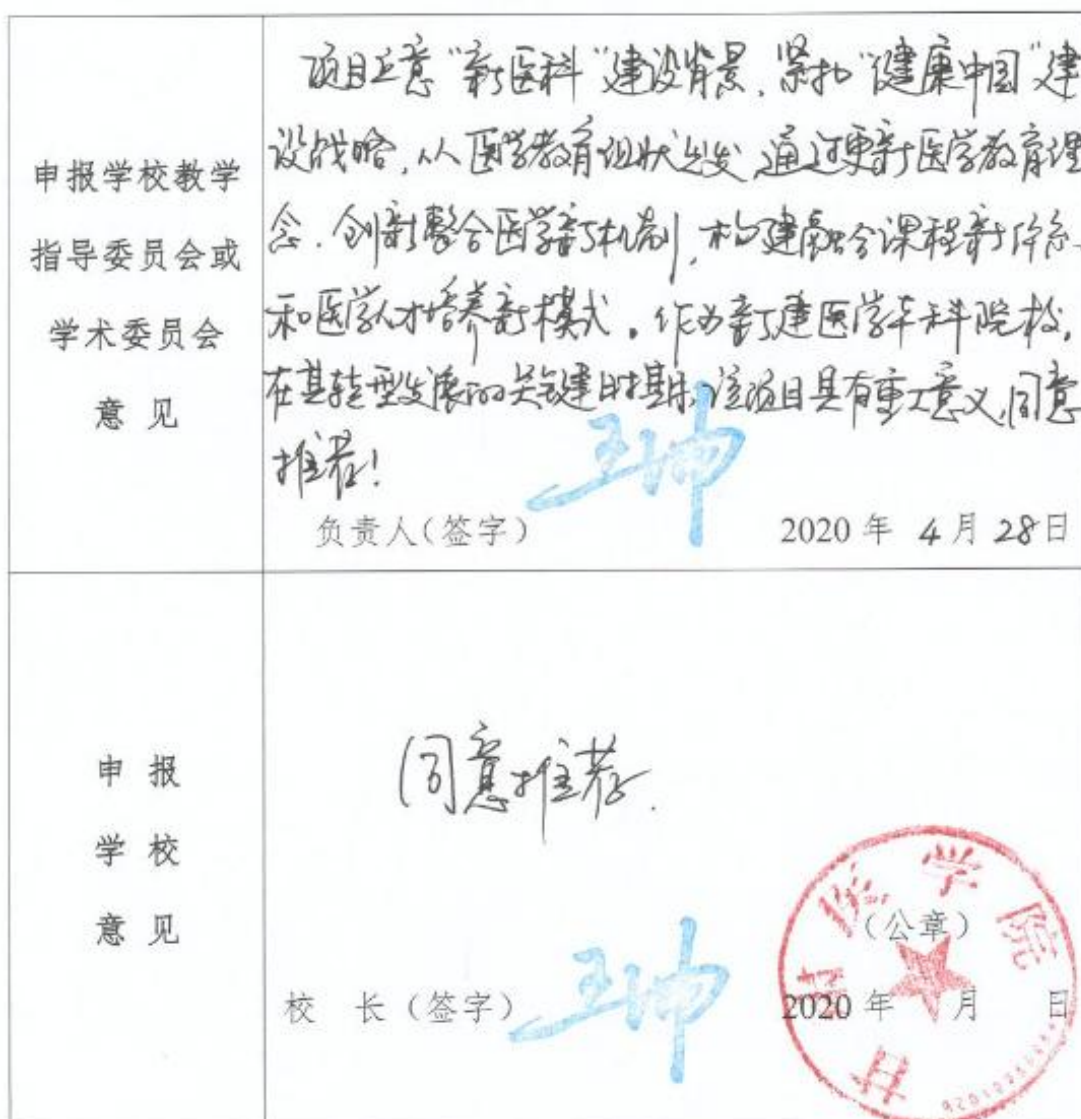 申报学校教学
指导委员会或
学术委员会
意 见
项目立意“新医科”建设背景,紧扣“健康中国”建
设战略,从医学教育现状出发,通过更新医学教育理
念,创新整合医学新机制,构建融合课程新体系
和医学人才培养新模式。作为新建医学本科院校,
在其转型发展的关键时期,该项目具有重大意义,同意
推荐!
负责人(签字)
王坤
2020 年 4 月 28 日
申 报
学 校
意 见
同意推荐.
医学院
(公章)
校 长 (签字)
王坤
2020 年 月 日